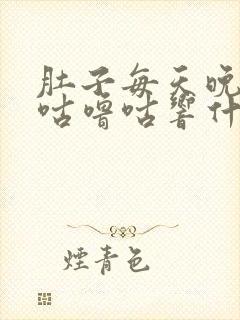 肚子每天晚
咕噜咕響什
煙青色